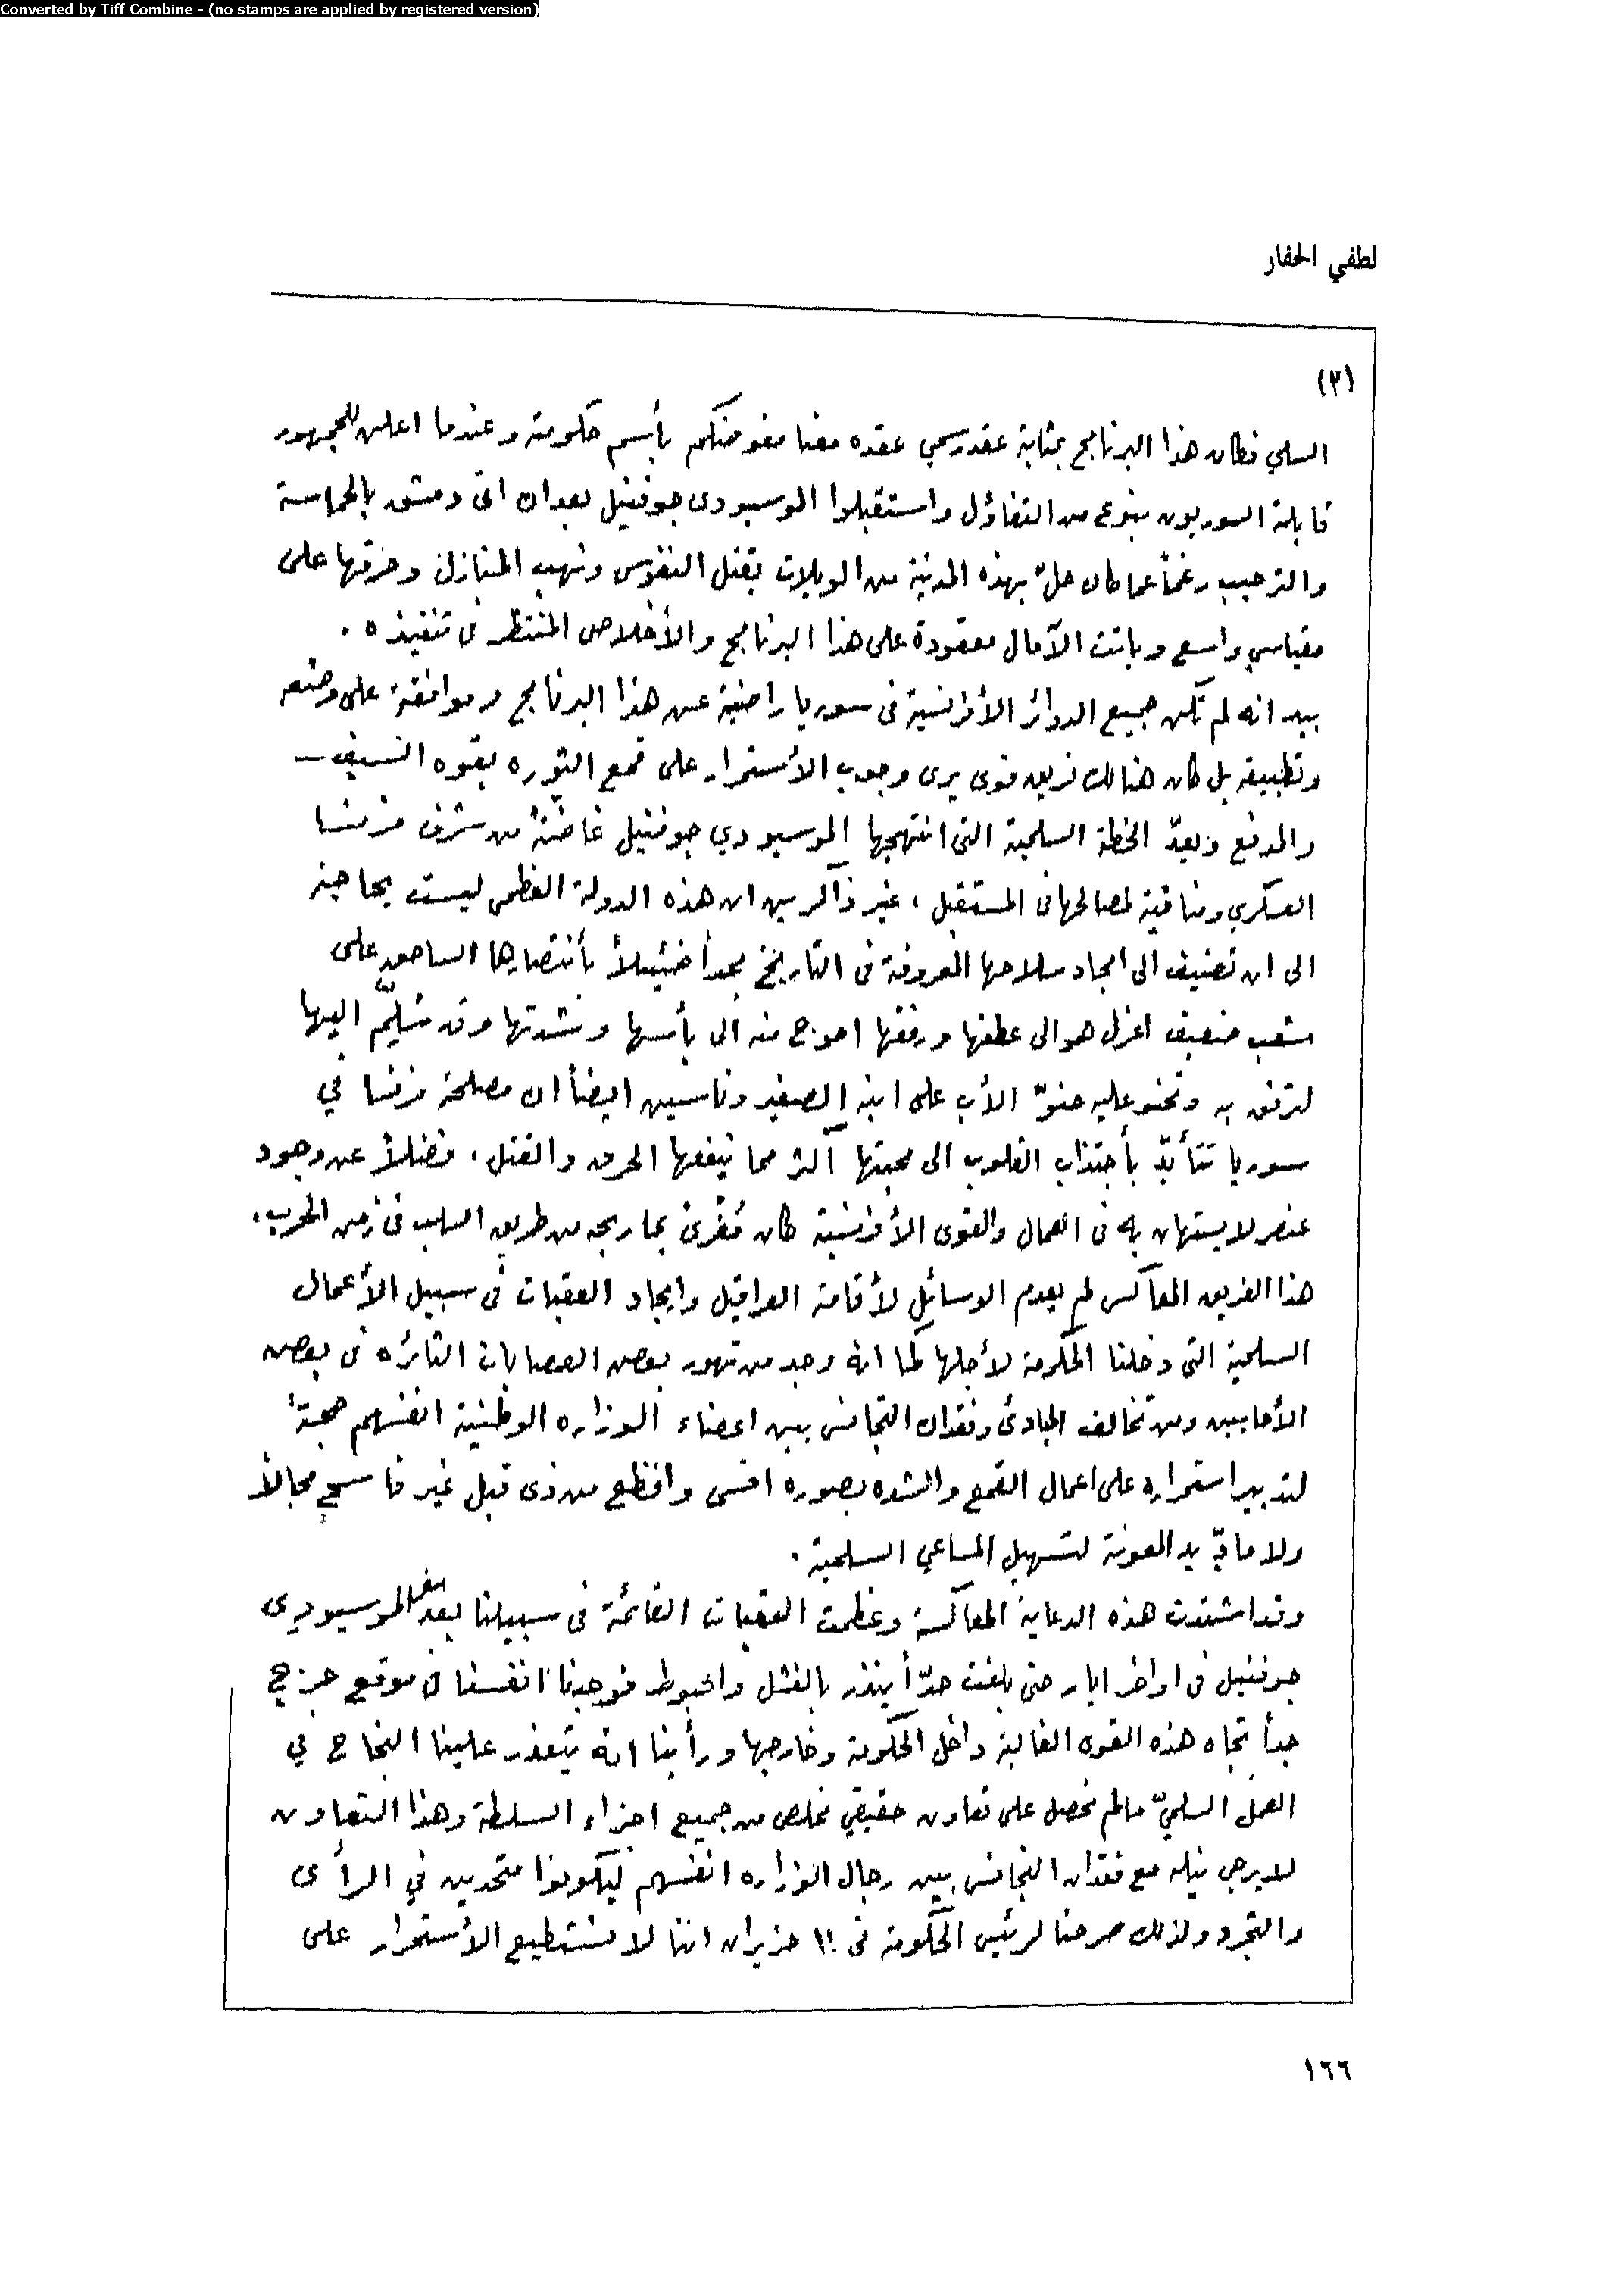 Converted by Tiff Combine - (no stamps are applied by registered version)
لطفي الحفار
(٢)
السلمي فكان هذا البرنامج بمثابة عقد رسمي عقده معنا مفوضكم بأسم حكومته وعندما اعلن للجمهور
قابله السوريون بنوع من التفاؤل واستقبلوا الموسيو دى جوفنيل بعد ان اتى دمشق بالحماسة
والترحيب رغماً عما كان حلّ بهذه المدينة من الويلات بقتل النفوس ونهب المنازل وحرقها على
مقياس واسع وباتت الآمال معقودة على هذا البرنامج والأخلاص المنتظر فى تنفيذه .
بيد انه لم تكن جميع الدوائر الأفرنسية فى سوريا راضية عن هذا البرنامج وموافقة على وضعه
وتطبيقه بل كان هنالك فريق قوى يرى وجوب الأستمرار على قمع الثوره بقوه السيف –
والمدفع ويعدّ الخطة السلمية التى انتهجها الموسيو دي جوفنيل غاضّةً من شرف فرنسا
العسكري ومنافية لمصالحها فى المستقبل ، غير ذاكرين ان هذه الدولة العظمى ليست بحاجة
الى ان تضيف الى امجاد سلاحها المعروفة فى التاريخ مجداً ضئيلاً بأنتصارها الساحق على
شعب ضعيف اعزل هو الى عطفها ورفقها احوج منه الى بأسها وشدتها وقد سُلِّم اليها
لترفق به وتحنو عليه حنوّ الأب على ابنه الصغير وناسين ايضاً ان مصلحة فرنسا في
سوريا تتأيّد بأجتذاب القلوب الى محبتها اكثر مما ينفعها الحرق والقتل ، فضلاً عن وجود
عنصر لا يستهان به فى العمال والقوى الأفرنسية كان مُغْرىً بما ربحه من طريق السلب فى زمن الحرب .
هذا الفريق المعاكس لم يعدم الوسائل لأقامة العراقيل وايجاد العقبات فى سبيل الأعمال
السلمية التى دخلنا الحكومة لأجلها كما انه وجد من تهور بعض العصابات الثائره فى بعض
الأحايين ومن تخالف المبادئ وفقدان التجانس بين اعضاء الوزاره الوطنية انفسهم حجةً
لتدبير استمراره على اعمال القمع والشده بصوره اقسى وافظع من ذى قبل غير فاسحٍ مجالاً
ولا مادٍّ يد المعونة لتسهيل المساعي السلمية .
وقد اشتدت هذه الدعاية المعاكسة وعظمت العقبات القائمة فى سبيلنا بعد سفر الموسيو دى
جوفنيل فى اواخر ايار حتى بلغت حدّاً ينذر بالفشل والحبوط فوجدنا انفسنا فى موقع حرج
جداً تجاه هذه القوى الغالبة داخل الحكومة وخارجها ورأينا انه يتعذر علينا النجاح في
العمل السلميّ مالم نحصل على تعاون حقيقي مخلص من جميع اجزاء السلطة وهذا التعاون
لا يرجى نيله مع فقدان التجانس بين رجال الوزاره انفسهم ليكونوا متحدين في الرأى
والتجرد ولذلك صرحنا لرئيس الحكومة فى ١١ حزيران اننا لا نستطيع الأستمرار على
١٦٦